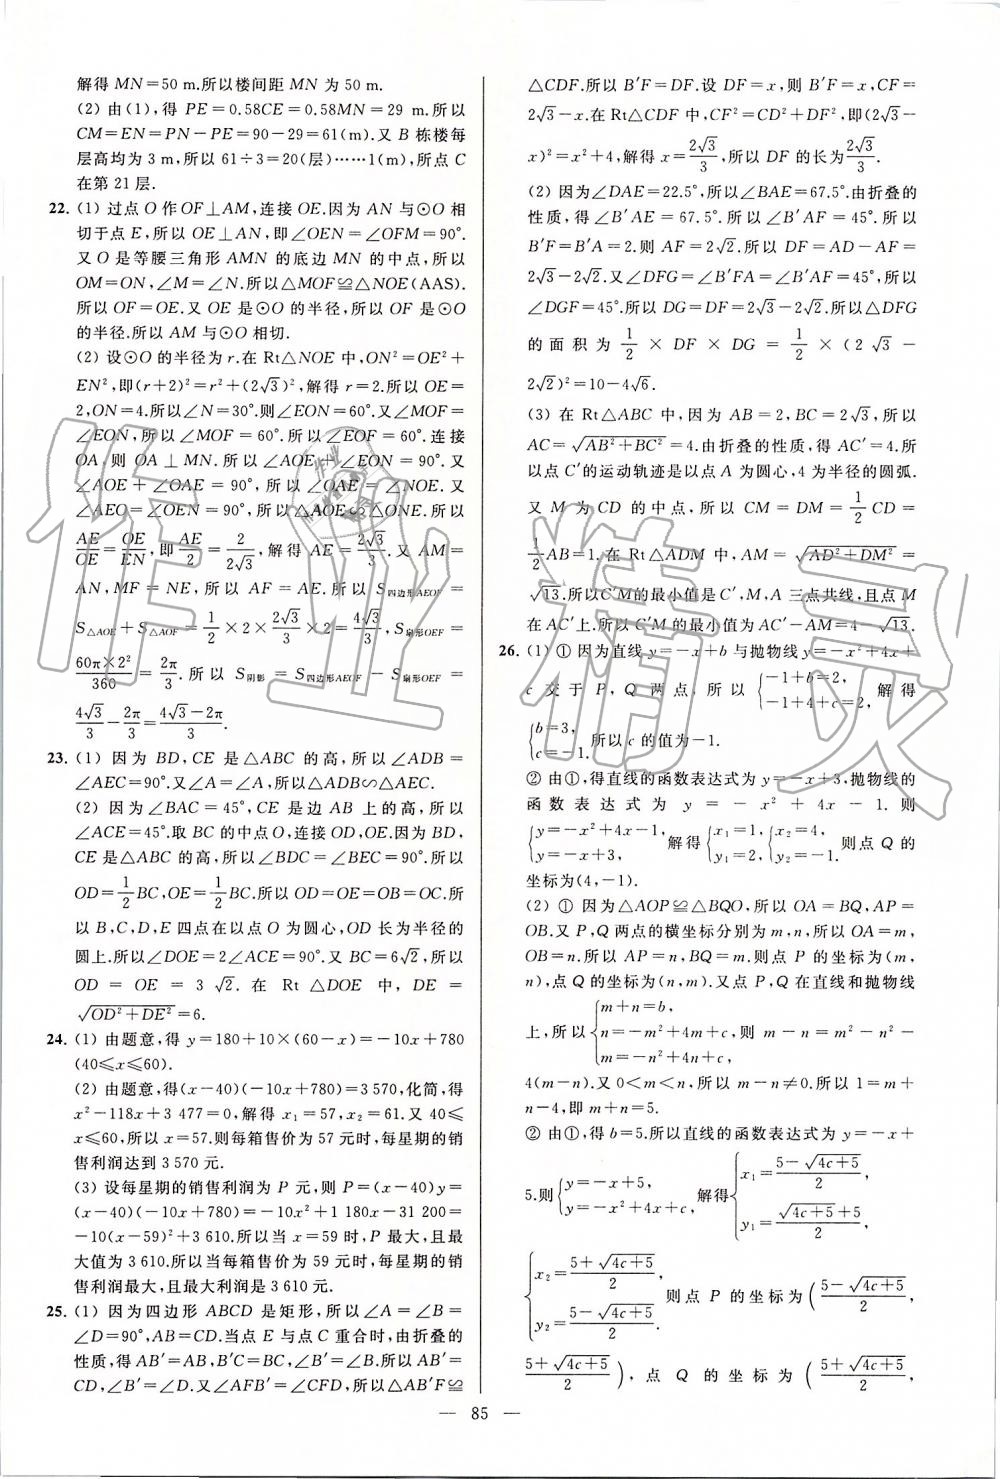 解得 MN=50 m.所以楼间距 MN 为 50 m.
(2) 由(1),得 PE=0.58CE=0.58MN=29 m.所以
CM=EN=PN-PE=90-29=61(m).又 B 栋楼每
层高均为 3 m,所以 61÷3=20(层)……1(m),所点 C
在第 21 层.
22. (1) 过点 O 作 OF⊥AM,连接 OE.因为 AN 与⊙O 相
切于点 E,所以 OE⊥AN,即∠OEN=∠OFM=90°.
又 O 是等腰三角形 AMN 的底边 MN 的中点,所以
OM=ON,∠M=∠N.所以△MOF≌△NOE(AAS).
所以 OF=OE.又 OE 是⊙O 的半径,所以 OF 是⊙O
的半径.所以 AM 与⊙O 相切.
(2) 设⊙O 的半径为 r.在 Rt△NOE 中,ON²=OE²+
EN²,即(r+2)²=r²+(2√3)²,解得 r=2.所以 OE=
2,ON=4.所以∠N=30°.则∠EON=60°.又∠MOF=
∠EON,所以∠MOF=60°.所以∠EOF=60°.连接
OA,则 OA⊥MN.所以∠AOE+∠EON=90°.又
∠AOE+∠OAE=90°,所以∠OAE=∠NOE.又
∠AEO=∠OEN=90°,所以△AOE∽△ONE.所以
AE/OE=OE/EN,即 AE/2=2/(2√3),解得 AE=2√3/3.又 AM=
AN,MF=NE,所以 AF=AE.所以 S四边形AEOF=
S△AOE+S△AOF=1/2×2×2√3/3×2=4√3/3,S扇形OEF=
60π×2²/360=2π/3.所以 S阴影=S四边形AEOF-S扇形OEF=
4√3/3-2π/3=(4√3-2π)/3.
23. (1) 因为 BD,CE 是△ABC 的高,所以∠ADB=
∠AEC=90°.又∠A=∠A,所以△ADB∽△AEC.
(2) 因为∠BAC=45°,CE 是边 AB 上的高,所以
∠ACE=45°.取 BC 的中点 O,连接 OD,OE.因为 BD,
CE 是△ABC 的高,所以∠BDC=∠BEC=90°.所以
OD=1/2BC,OE=1/2BC.所以 OD=OE=OB=OC.所
以 B,C,D,E 四点在以点 O 为圆心,OD 长为半径的
圆上.所以∠DOE=2∠ACE=90°.又 BC=6√2,所以
OD=OE=3√2.在 Rt△DOE 中,DE=
√(OD²+DE²)=6.
24. (1) 由题意,得 y=180+10×(60-x)=-10x+780
(40≤x≤60).
(2) 由题意,得(x-40)(-10x+780)=3 570,化简,得
x²-118x+3 477=0,解得 x₁=57,x₂=61.又 40≤
x≤60,所以 x=57.则每箱售价为 57 元时,每星期的销
售利润达到 3 570 元.
(3) 设每星期的销售利润为 P 元,则 P=(x-40)y=
(x-40)(-10x+780)=-10x²+1 180x-31 200=
-10(x-59)²+3 610.所以当 x=59 时,P 最大,且最
大值为 3 610.所以当每箱售价为 59 元时,每星期的销
售利润最大,且最大利润是 3 610 元.
25. (1) 因为四边形 ABCD 是矩形,所以∠A=∠B=
∠D=90°,AB=CD.当点 E 与点 C 重合时,由折叠的
性质,得 AB′=AB,B′C=BC,∠B′=∠B.所以 AB′=
CD,∠B′=∠D.又∠AFB′=∠CFD,所以△AB′F≌
△CDF.所以 B′F=DF.设 DF=x,则 B′F=x,CF=
2√3-x.在 Rt△CDF 中,CF²=CD²+DF²,即(2√3-
x)²=x²+4,解得 x=2√3/3,所以 DF 的长为2√3/3.
(2) 因为∠DAE=22.5°,所以∠BAE=67.5°.由折叠的
性质,得∠B′AE=67.5°.所以∠B′AF=45°.所以
B′F=B′A=2.则 AF=2√2.所以 DF=AD-AF=
2√3-2√2.又∠DFG=∠B′FA=∠B′AF=45°,所以
∠DGF=45°.所以 DG=DF=2√3-2√2.所以△DFG
的面积为1/2×DF×DG=1/2×(2√3-
2√2)²=10-4√6.
(3) 在 Rt△ABC 中,因为 AB=2,BC=2√3,所以
AC=√(AB²+BC²)=4.由折叠的性质,得 AC′=4.所
以点 C′的运动轨迹是以点 A 为圆心,4 为半径的圆弧.
又 M 为 CD 的中点,所以 CM=DM=1/2CD=
1/2AB=1.在 Rt△ADM 中,AM=√(AD²+DM²)=
√13.所以C′M的最小值是 C′,M,A 三点共线,且点 M
在 AC′上.所以 C′M 的最小值为 AC′-AM=4-√13.
26. (1) ① 因为直线 y=-x+b 与抛物线 y=-x²+4x+
c 交于 P,Q 两点,所以{-1+b=2, -1+4+c=2, 解得
{b=3, c=-1. 所以 c 的值为-1.
② 由①,得直线的函数表达式为 y=-x+3,抛物线的
函数表达式为 y=-x²+4x-1.则
{y=-x²+4x-1, y=-x+3, 解得{x₁=1, y₁=2, {x₂=4, y₂=-1. 则点 Q 的
坐标为(4,-1).
(2) ① 因为△AOP≌△BQO,所以 OA=BQ,AP=
OB.又 P,Q 两点的横坐标分别为 m,n,所以 OA=m,
OB=n.所以 AP=n,BQ=m.则点 P 的坐标为(m,
n),点 Q 的坐标为(n,m).又点 P,Q 在直线和抛物线
上,所以{m+n=b, n=-m²+4m+c, m=-n²+4n+c, 则 m-n=m²-n²-
4(m-n).又 0<m<n,所以 m-n≠0.所以 1=m+
n-4,即 m+n=5.
② 由①,得 b=5.所以直线的函数表达式为 y=-x+
5.则{y=-x+5, y=-x²+4x+c, 解得{x₁=(5-√(4c+5))/2, y₁=(√(4c+5)+5)/2,
{x₂=(5+√(4c+5))/2, y₂=(5-√(4c+5))/2. 则点 P 的坐标为((5-√(4c+5))/2,
(5+√(4c+5))/2),点 Q 的坐标为((5+√(4c+5))/2,
— 85 —
作业精灵